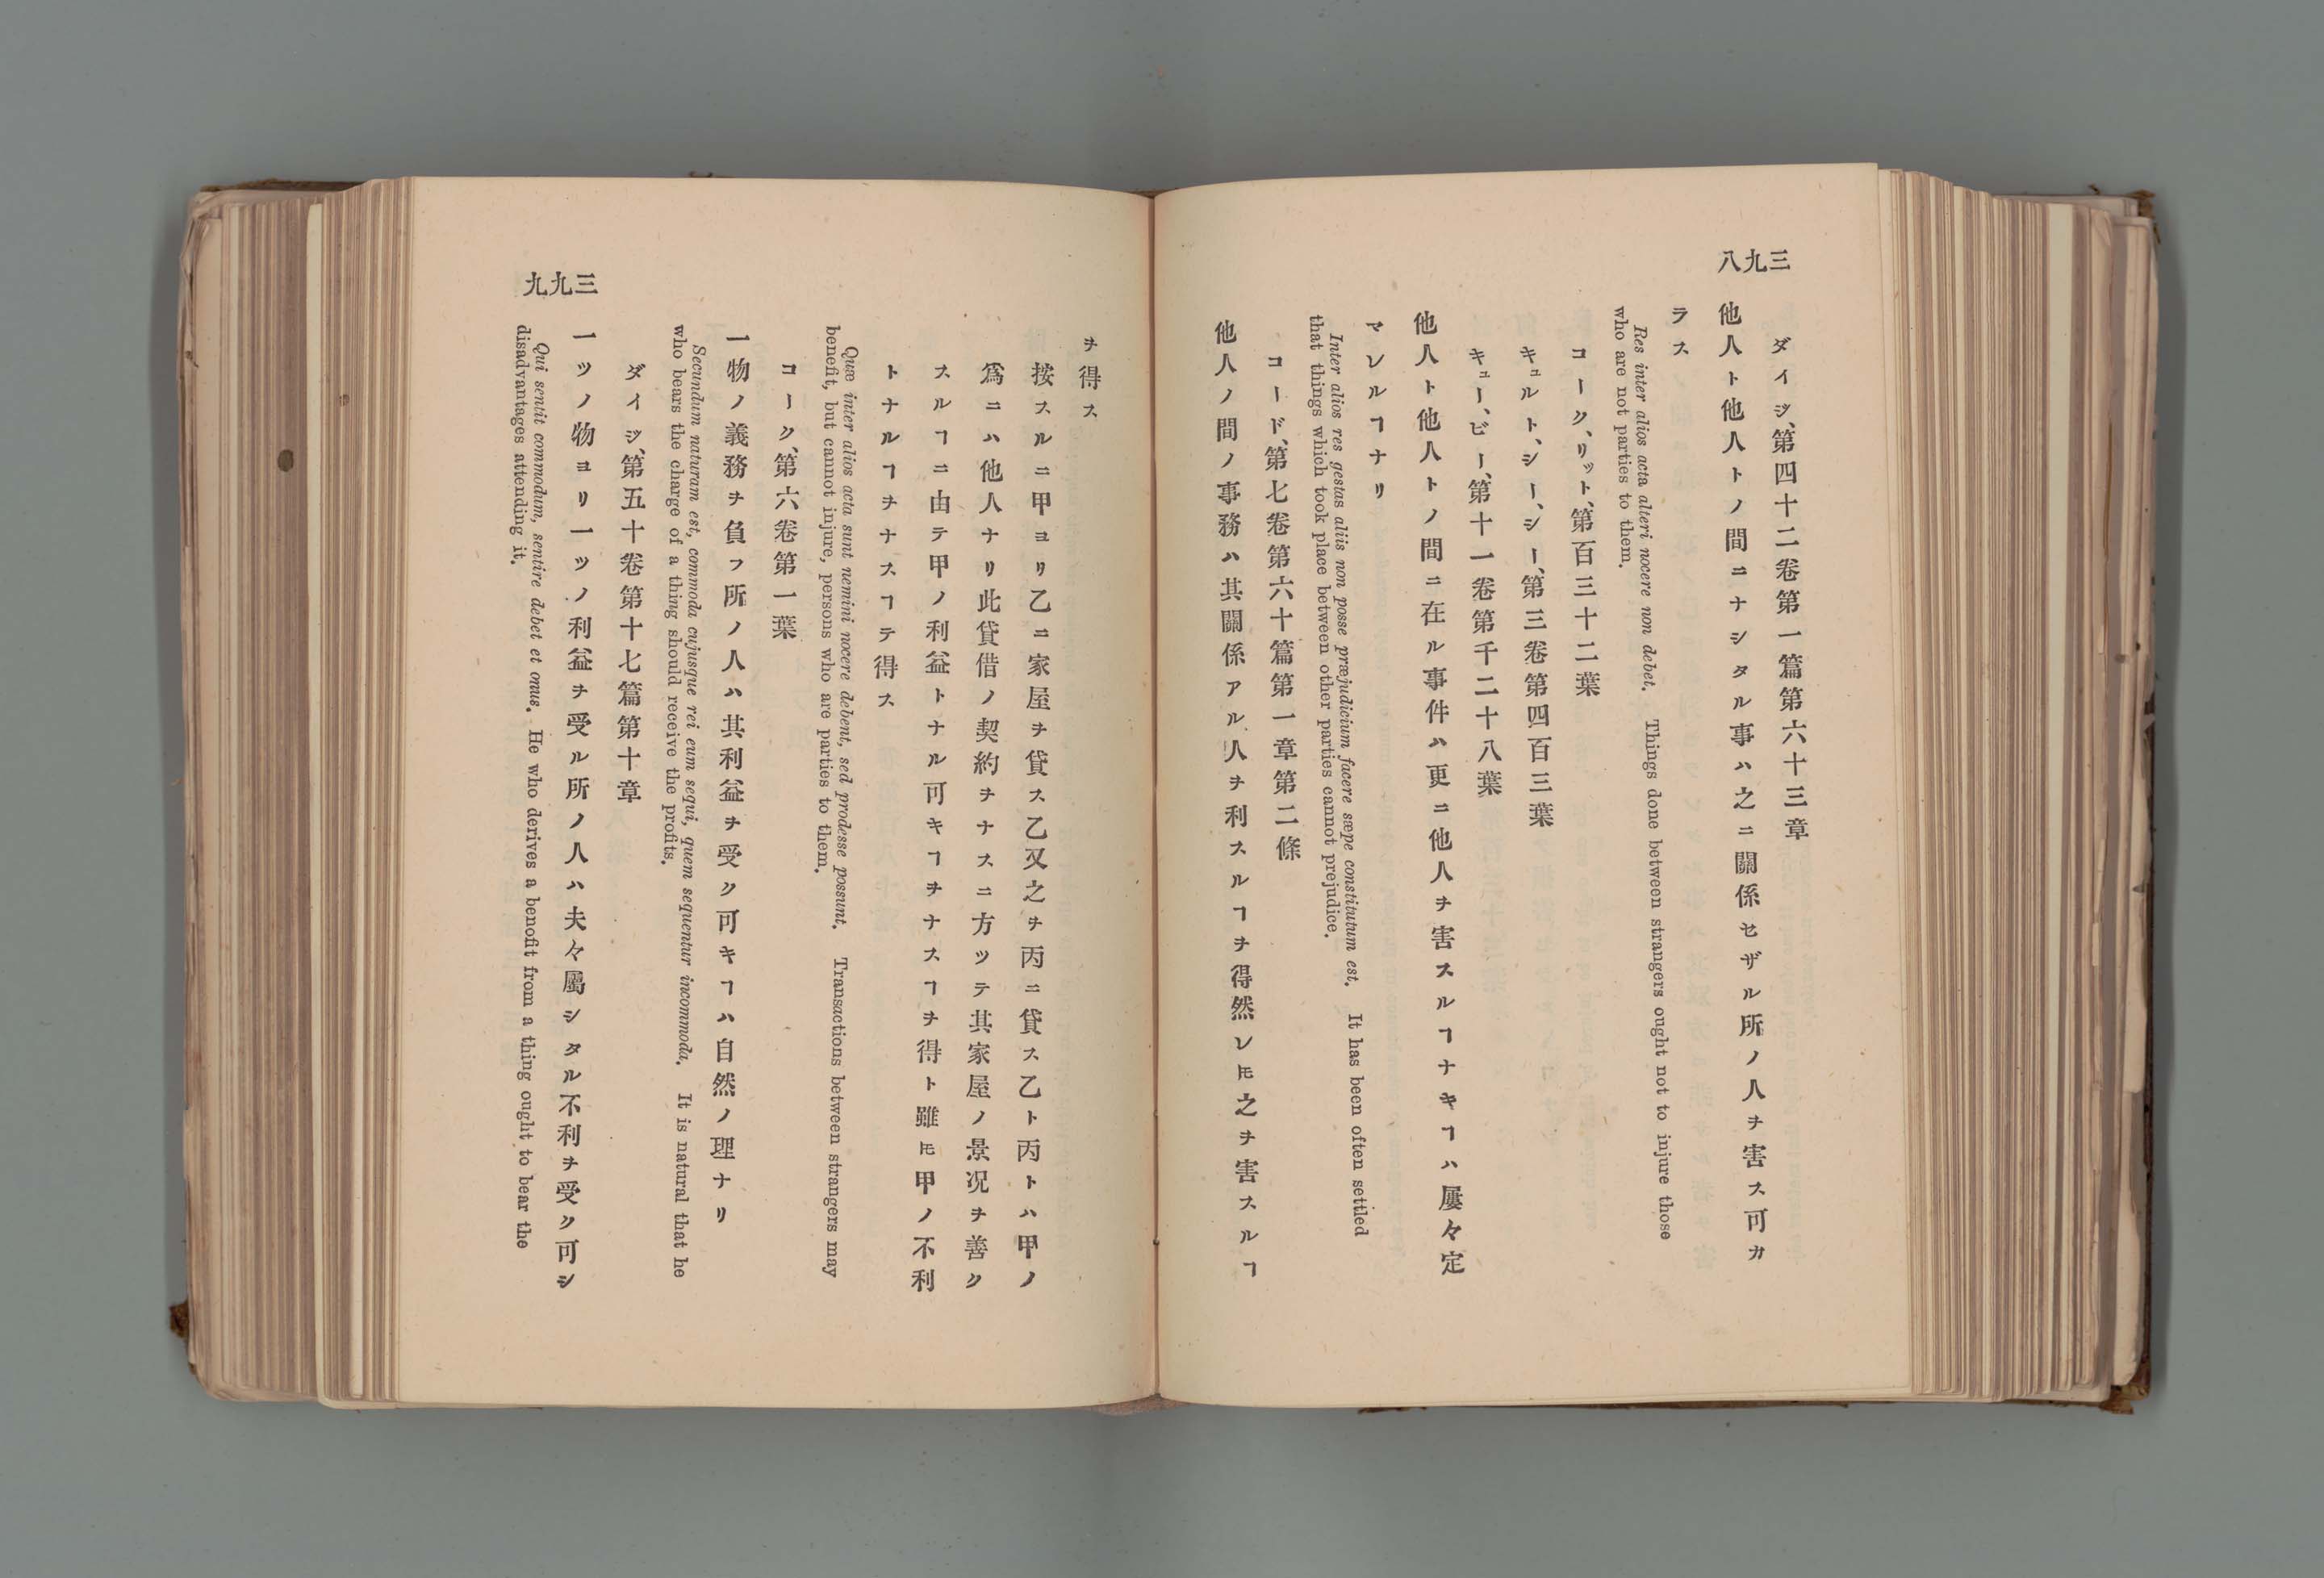 三九八
ダイジ、第四十二卷第一篇第六十三章
他人ト他人トノ間ニナシタル事ハ之ニ關係セザル所ノ人ヲ害ス可カ
ラス
Res inter alios acta alteri nocere non debet. Things done between strangers ought not to injure those
who are not parties to them.
コーク、リット、第百三十二葉
キュルト、シー、シー、第三卷第四百三葉
キュー、ビー、第十一卷第千二十八葉
他人ト他人トノ間ニ在ル事件ハ更ニ他人ヲ害スルヿナキヿハ屢々定
マレルヿナリ
Inter alios res gestas aliis non posse præjudicium facere sæpe constitutum est. It has been often settled
that things which took place between other parties cannot prejudice.
コード、第七卷第六十篇第一章第二條
他人ノ間ノ事務ハ其關係アル人ヲ利スルヿヲ得然レ𪜈之ヲ害スルヿ
三九九
ヲ得ス
按スルニ甲ヨリ乙ニ家屋ヲ貸ス乙又之ヲ丙ニ貸ス乙ト丙トハ甲ノ
爲ニハ他人ナリ此貸借ノ契約ヲナスニ方ツテ其家屋ノ景況ヲ善ク
スルヿニ由テ甲ノ利益トナル可キヿヲナスヿヲ得ト雖𪜈甲ノ不利
トナルヿヲナスヿテ得ス
Quæ inter alios acta sunt nemini nocere debent, sed prodesse possunt. Transactions between strangers may
benefit, but cannot injure, persons who are parties to them.
コーク、第六卷第一葉
一物ノ義務ヲ負フ所ノ人ハ其利益ヲ受ク可キヿハ自然ノ理ナリ
Secundum naturam est, commoda cujusque rei eum sequi, quem sequentur incommoda. It is natural that he
who bears the charge of a thing should receive the profits.
ダイジ、第五十卷第十七篇第十章
一ツノ物ヨリ一ツノ利益ヲ受ル所ノ人ハ夫々屬シタル不利ヲ受ク可シ
Qui sentit commodum, sentire debet et onus. He who derives a benofit from a thing ought to bear the
disadvantages attending it.